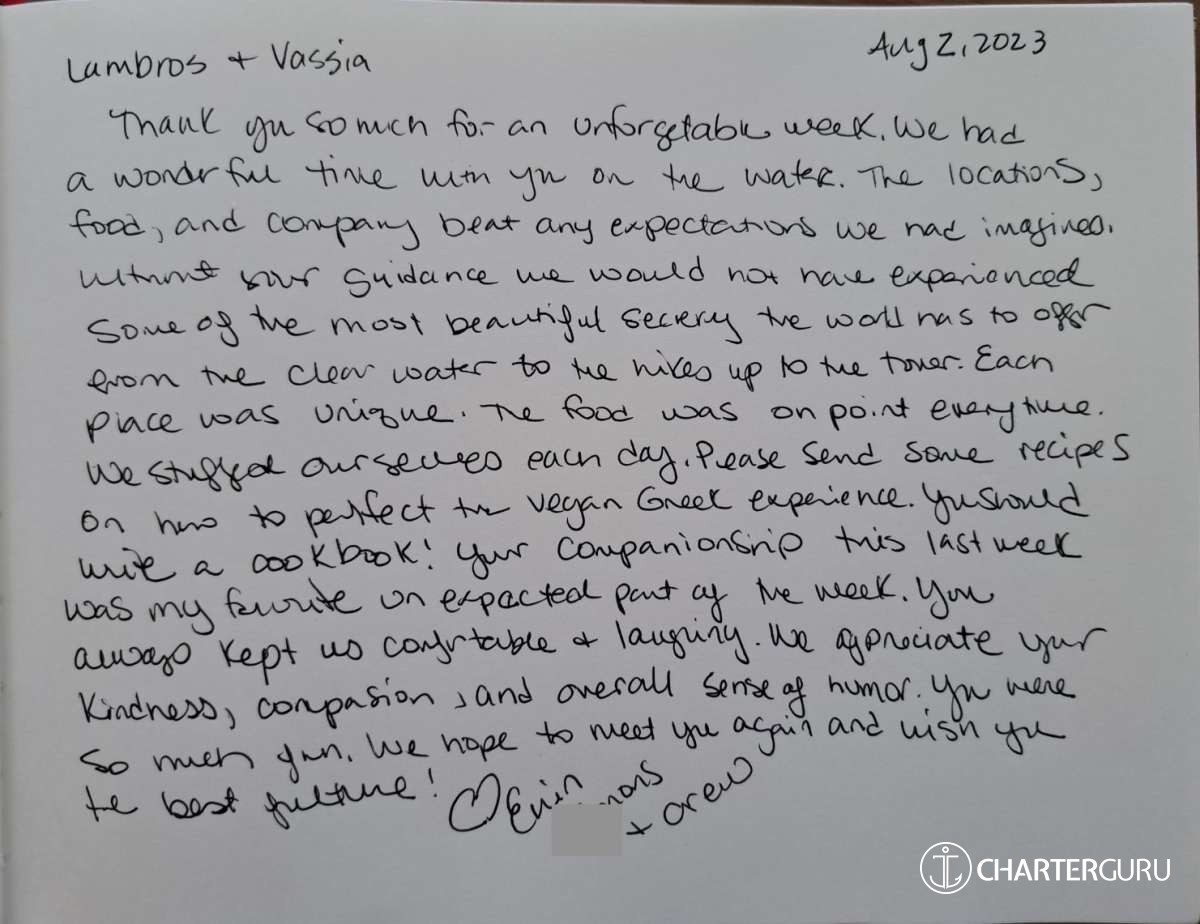 Lambros + Vassia
Aug 2, 2023
Thank you so much for an unforgetable week. We had
a wonderful time with you on the water. The locations,
food, and company beat any expectations we had imagined.
Without your guidance we would not have experienced
some of the most beautiful secnery the world has to offer
from the clear water to the hikes up to the tower. Each
place was unique. The food was on point everytime.
We stuffed ourselves each day. Please send some recipes
on how to perfect the vegan Greek experience. You should
write a cookbook! Your companionship this last week
was my favorite unexpected part of the week. You
always kept us comfortable + laughing. We appreciate your
kindness, compasion, and overall sense of humor. You were
so much fun. We hope to meet you again and wish you
the best future! ♡ Erin
+ crew
CHARTERGURU